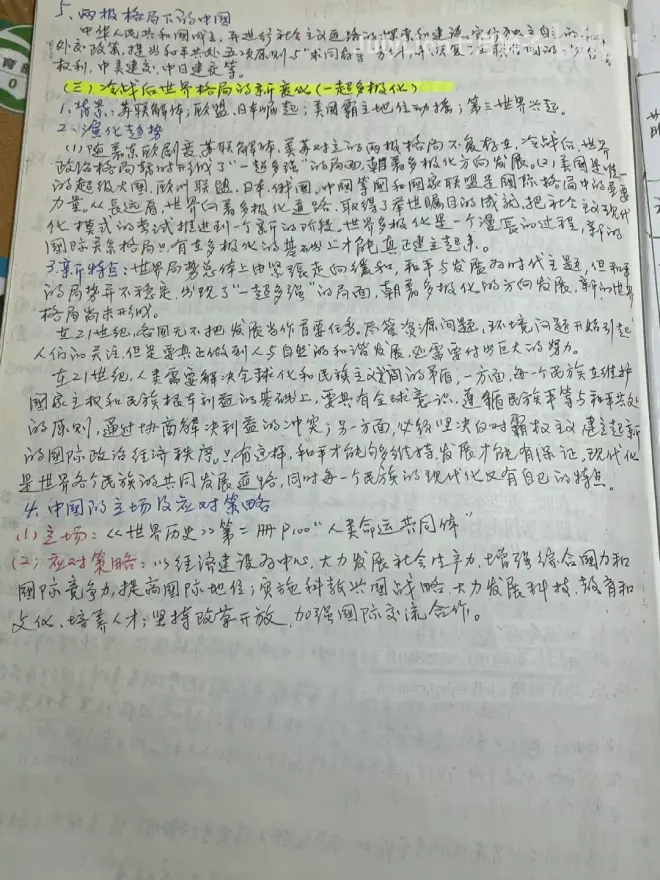 5、两极格局下的中国
中华人民共和国成立，开始社会主义道路的探索和建设，实行独立自主的和平
外交政策，提出和平共处五项原则与"求同存异"方针，并恢复了在联合国的合法
权利，中美建交，中日建交等。
(三)冷战后世界格局的新变化(一超多极化)
1、背景：苏联解体；欧盟、日本崛起；美国霸主地位动摇；第三世界兴起。
2、演化趋势
(1)随着东欧剧变、苏联解体，美苏对立的两极格局不复存在，冷战后，世界
政治格局暂时形成了"一超多强"的局面，朝着多极化方向发展。(2)美国是唯一
的超级大国，欧洲联盟、日本、俄国、中国等国和国家联盟是国际格局中的重要
力量。从长远看，世界向着多极化道路，取得了举世瞩目的成就，把社会主义现代
化模式的尝试推进到一个新的阶段，世界多极化是一个漫长的过程，新的
国际关系格局只有在多极化的基础上才能真正建立起来。
3、新特点：世界局势总体上由紧张走向缓和，和平与发展为时代主题，但和平
的局势并不稳定，出现了"一超多强"的局面，朝着多极化的方向发展，新的世界
格局尚未形成。
在21世纪，各国无不把发展当作首要任务。尽管资源问题，环境问题开始引起
人们的关注，但是要真正做到人与自然的和谐发展，还需要付出巨大的努力。
在21世纪，人类需要解决全球化和民族主义之间的矛盾，一方面，每一个民族在维护
国家主权和民族根本利益的基础上，要具有全球意识，遵循民族平等与和平共处
的原则，通过协商解决利益的冲突；另一方面，必须坚决反对霸权主义，建立起新
的国际政治经济秩序。只有这样，和平才能够维持，发展才能有保证，现代化
是世界各个民族的共同发展道路，同时每一个民族的现代化又有自己的特点。
4、中国的立场及应对策略
(1)立场：《世界历史》第二册P100"人类命运共同体"
(2)应对策略：以经济建设为中心，大力发展社会生产力，增强综合国力和
国际竞争力，提高国际地位；实施科教兴国战略，大力发展科技、教育和
文化，培养人才；坚持改革开放，加强国际交流合作。